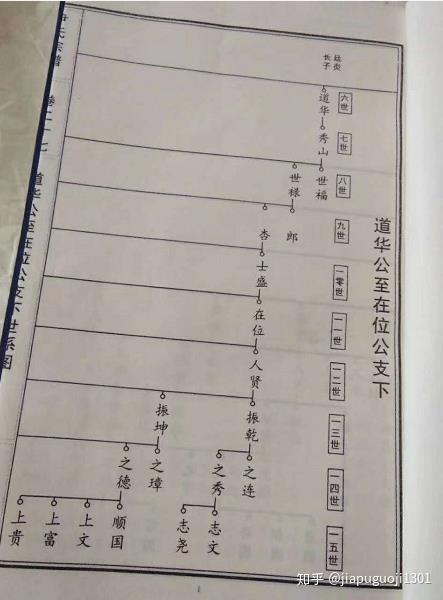 道华公至在位公支下
六世
七世
八世
九世
一零世
一一世
一二世
一三世
一四世
一五世
廷炎
长子
道华
秀山
世福
世禄
郎
杏
士盛
在位
人贤
振乾
振坤
之连
之秀
之璋
之德
志文
志尧
顺国
上文
上富
上贵
氏宗谱
卷二十七
道华公至在位公支下世系图
知乎 @jiapuguoji1301